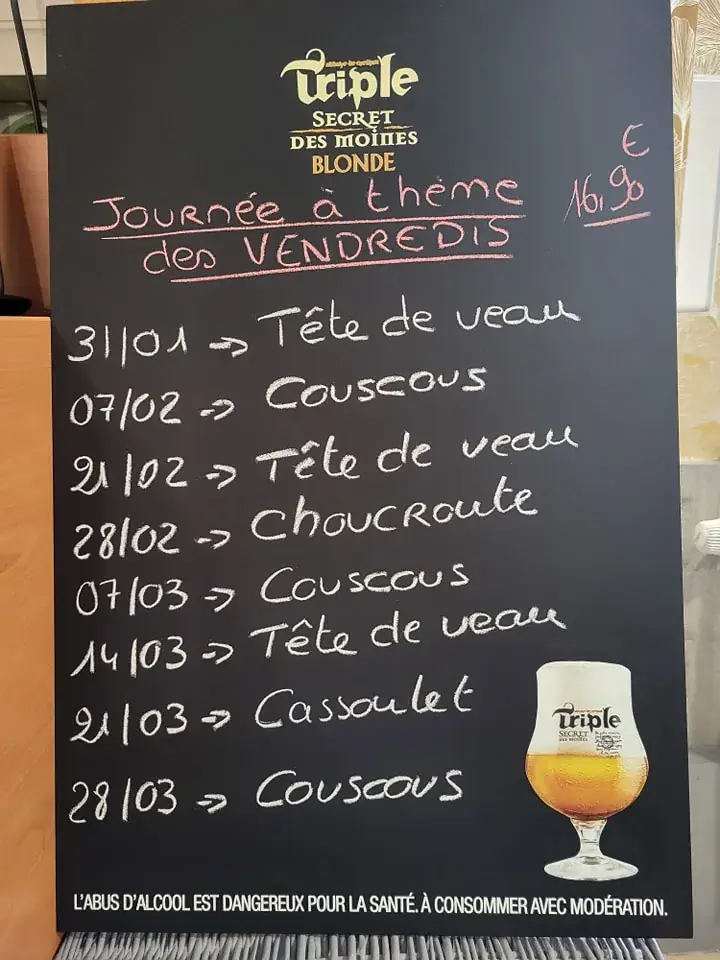 Triple
SECRET
DES MOINES
BLONDE
JOURNÉE à thème
des VENDREDIS
€
16,90
31/01 → Tête de veau
07/02 → Couscous
21/02 → Tête de veau
28/02 → Choucroute
07/03 → Couscous
14/03 → Tête de veau
21/03 → Cassoulet
28/03 → Couscous
Triple
SECRET
DES MOINES
L'ABUS D'ALCOOL EST DANGEREUX POUR LA SANTÉ. À CONSOMMER AVEC MODÉRATION.